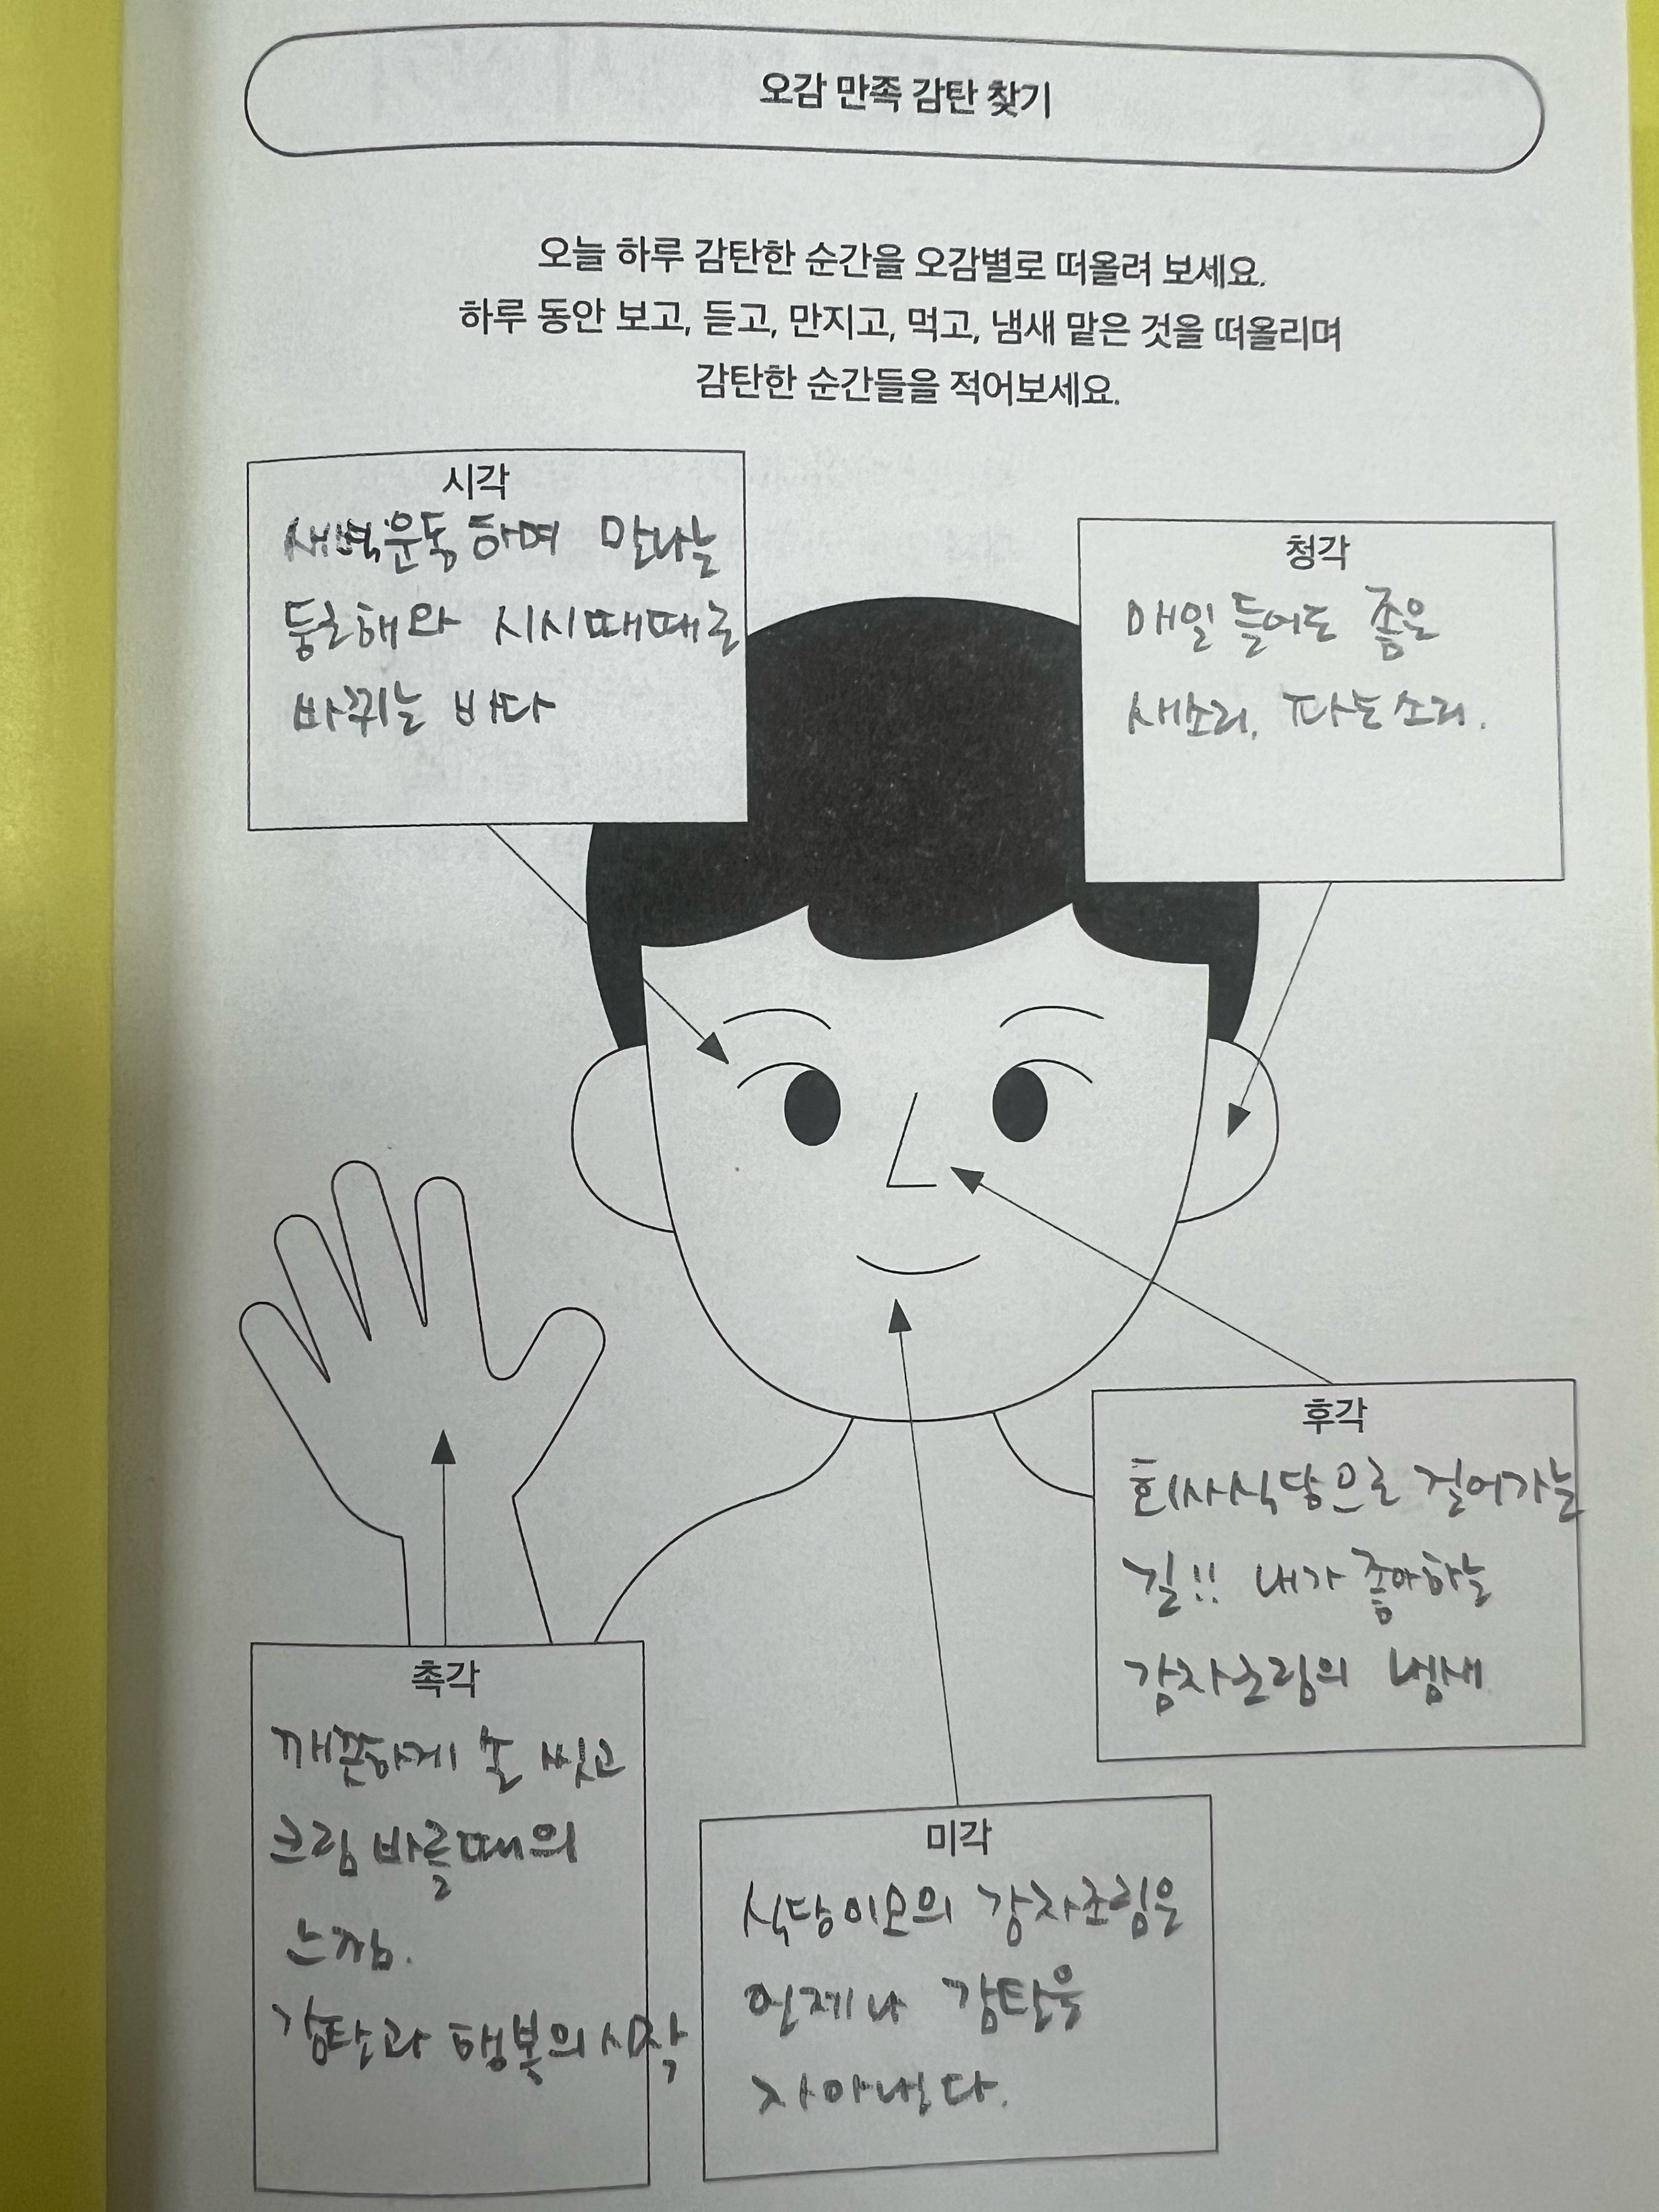 오감 만족 감탄 찾기
오늘 하루 감탄한 순간을 오감별로 떠올려 보세요.
하루 동안 보고, 듣고, 만지고, 먹고, 냄새 맡은 것을 떠올리며
감탄한 순간들을 적어보세요.
시각
새벽운동하며 만나는
둥근해와 시시때때로
바뀌는 바다
청각
매일 들어도 좋은
새소리, 파도소리.
후각
회사식당으로 걸어가는
길!! 내가 좋아하는
감자조림의 냄새
촉각
깨끗하게 손 씻고
크림 바를때의
느낌.
감탄과 행복의 시작
미각
식당이모의 감자조림은
언제나 감탄을
자아낸다.